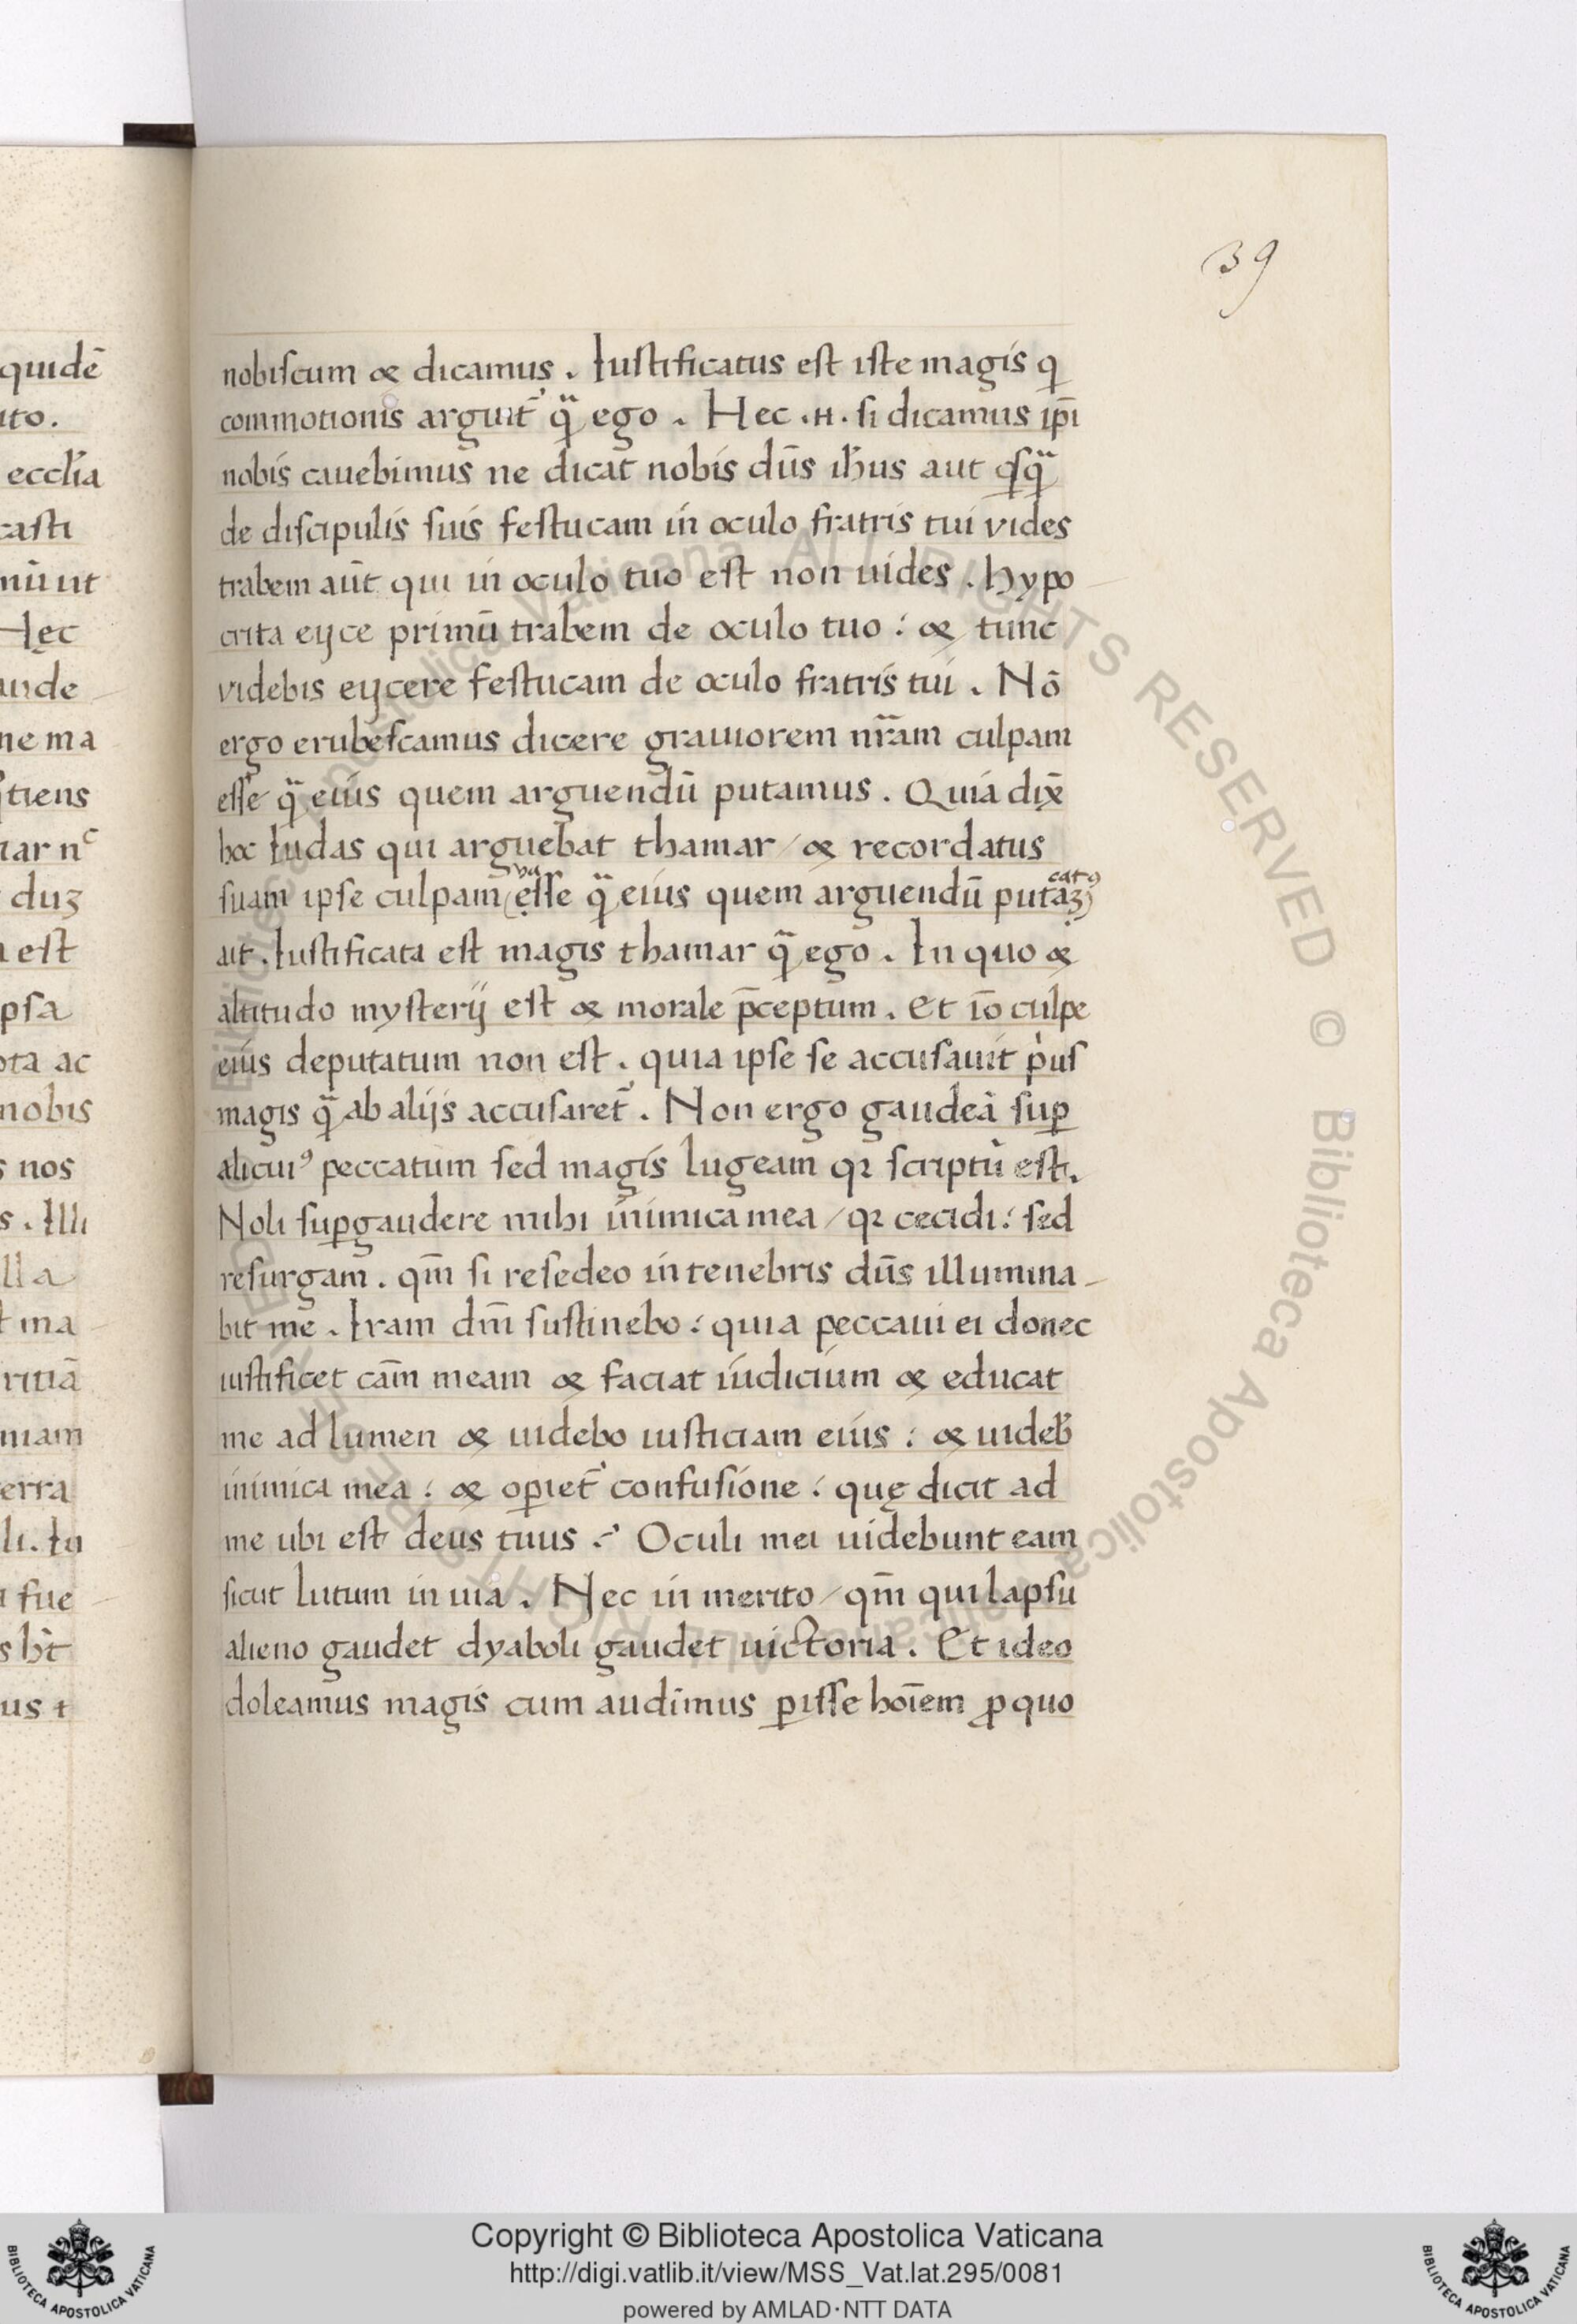 39
nobiscum & dicamus. Iustificatus est iste magis q
commotionis arguit᷑ qͣ ego. Hec .H. si dicamus ip̄i
nobis cauebimus ne dicat nobis dn̄s ih̄us aut qͣsqͣ
de discipulis suis festucam in oculo fratris tui vides
trabem aūt qui in oculo tuo est non uides. hypo
crita eijce primū trabem de oculo tuo: & tunc
videbis eijcere festucam de oculo fratris tui. Nō
ergo erubescamus dicere grauiorem nr̄am culpam
esse qͣ eius quem arguendū putamus. Quia dix̄
hoc Iudas qui arguebat thamar / & recordatus
suam ipse culpam esse qͣ eius quem arguendū putaȝ
ait. Iustificata est magis thamar qͣ ego. In quo &
altitudo mysterij est & morale p̄ceptum. et iō culpe
eius deputatum non est. quia ipse se accusauit pͥus
magis qͣ ab alijs accusaret᷑. Non ergo gaudeā suꝑ
alicuiꝰ peccatum sed magis lugeam qꝛ scriptū est.
Noli suꝑgaudere mihi inimica mea / qꝛ cecidi: sed
resurgam. qm̄ si resedeo in tenebris dn̄s illumina
bit me. Iram dn̄i sustinebo: quia peccaui ei donec
iustificet cām meam & faciat iudicium & educat
me ad lumen & uidebo iusticiam eius: & uideb̄
inimica mea: & oꝑiet᷑ confusione: quę dicit ad
me ubi est deus tuus? Oculi mei uidebunt eam
sicut lutum in uia. Nec in merito / qm̄ qui lapsu
alieno gaudet dyaboli gaudet uictoria. Et ideo
doleamus magis cum audimus ꝑisse hoīem ꝓ quo
quidē
ecclīa
casti
Hęc
uide
ne ma
duȝ
est
ota ac
nobis
nos
Illi
erra
fue
Copyright © Biblioteca Apostolica Vaticana
http://digi.vatlib.it/view/MSS_Vat.lat.295/0081
powered by AMLAD·NTT DATA
BIBLIOTECA APOSTOLICA VATICANA
BIBLIOTECA APOSTOLICA VATICANA